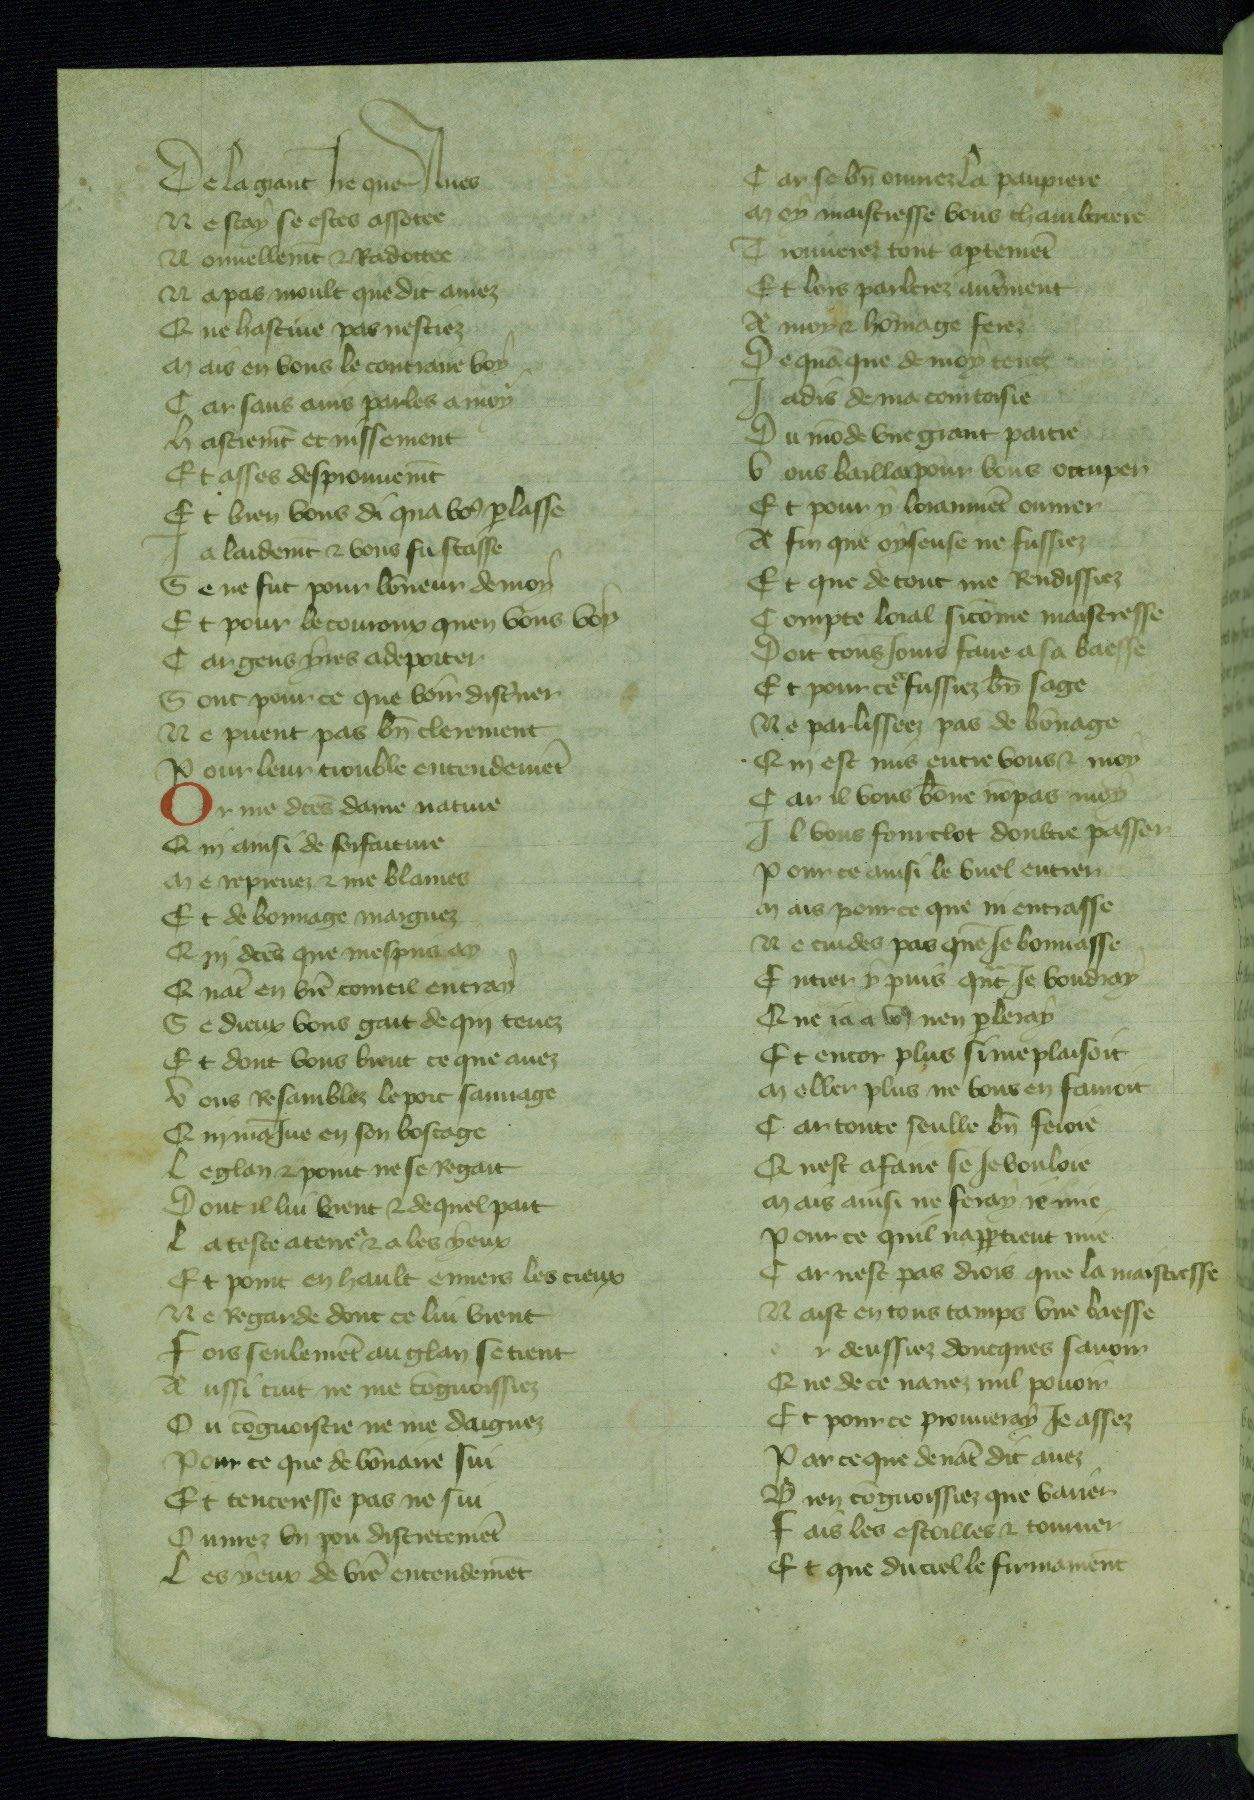 De la grant Ire que Aues
Ne scay se estes assotee
Nouuellemt & Radottee
Na pas moult que dit auiez
Que hastiue pas nestiez
Mais en vous le contraire voy
Car sans auis parles a moy
hastiemt et nissement
Et asses desprouuemt
Et bien vous di qua vous plasse
Ia laidemt & vous fustasse
Se ne fut pour lonneur de moy
Et pour le couroux quen vous voy
Car gens yres a deporter
Sont pour ce que voir discner
Ne puent pas bn clerement
Pour leur trouble entendemet
Or me dtes dame nature
Qui ainsi de forfaiture
Me reprenez & me blames
Et de bonnage marguez
Qui dtes que mespris ay
Quat en vre courtil entray
Se dieux vous gart de qui tenez
Et dont vous vient ce que auez
Vous Resamblez le porc sauuage
Qui maIue en son boscage
Le glan & point ne se Regart
Dont il lui vient & de quel part
La teste a terre & a les yeux
Et point en hault enuers les cieux
Ne Regarde dont ce lui vient
Fors seulemet au glan se tient
Aussi cuit ne me cognoissiez
Ou cognoistre ne me daignez
Pour ce que debonaire sui
Et tenceresse pas ne sui
Ouurez vn pou discretemet
Les yeux de vre entendemet
Car se bn ouurez la paupiere
Moy maistresse vous chambriere
Trouuerez tout aptemet
Et lors parlerez autment
A moy & homage ferez
De quaque de moy tenez
Iadis de ma courtoisie
Du mode vne grant partie
Vous baillay pour vous occuper
Et pour y loiaumet ouurer
A fin que oyseuse ne fussiez
Et que de tout me Rendissiez
Compte loial si come maistresse
Doit tous Iours faire a sa baesse
Et pour ce fussiez bn sage
Ne parlissiez pas de bonage
Qui est mis entre vous & moy
Car il vous bone no pas moy
Il vous fourclot doultre passer
Pour ce ainsi le vuel entrer
Mais pour ce que ni entrasse
Ne cuides pas que Ie bonnasse
Entrer y puis qnt Ie voudray
Que ia a vous nen pleray
Et encor plus si me plaisoit
Meller plus ne vous en fauroit
Car toute seulle bn feroie
Quest a faire se Ie vouloie
Mais ainsi ne feray ie mie
Pour ce quil napptient mie
Car nest pas drois que la maistresse
Naist en tous tamps vne baesse
r deussiez doncques sauoir
Que de ce nauez nul pouoir
Et pour ce prouueray Ie assez
Par ce que deuat dit auez
Bien cognoissiez que varier
Fais les estoilles & tourner
Et que du ciel le firmament